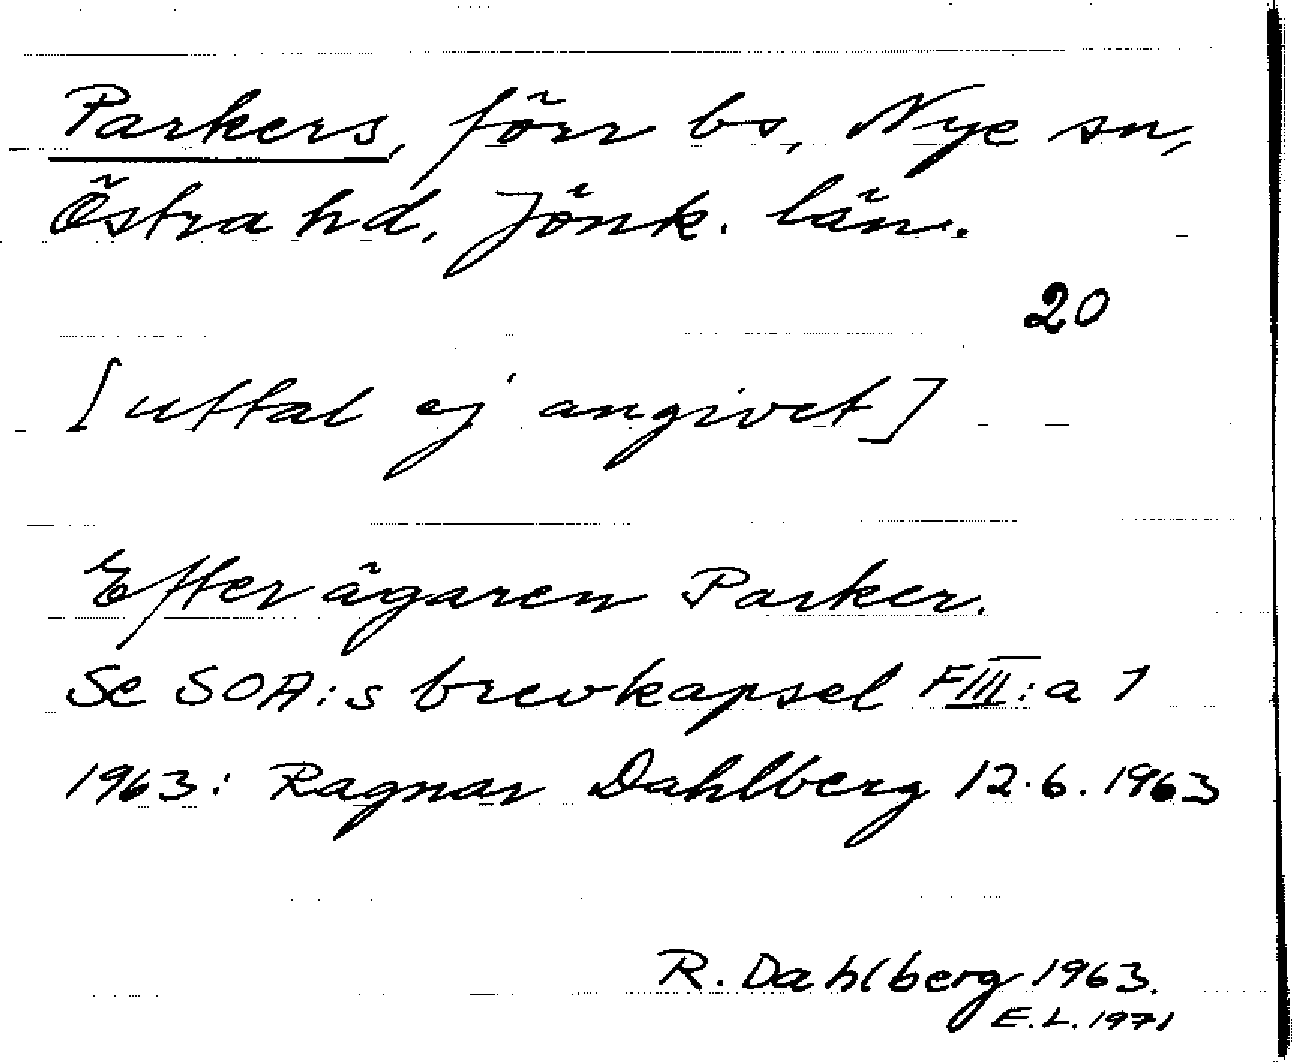 Parkers, förr bs, Nye sn,
Östra hd, Jönk. län.
20
[uttal ej angivet]
Efter ägaren Parker.
Se SOA:s brevkapsel FIII:a 1
1963: Ragnar Dahlberg 12.6.1963
R. Dahlberg 1963.
E.L. 1971